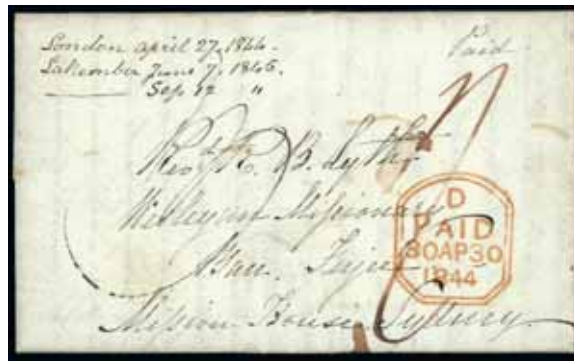 London april 27, 1844.
Lakember June 7, 1845.
Sep 12 "
Paid
Revd R. B. Lyth
Wesleyan Missionary
Feejee
Mission House Sydney
D
PAID
30AP30
1844